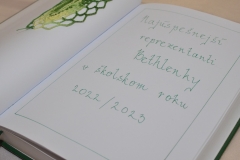 Najúspešnejší
reprezentanti
Bethlenky
v školskom roku
2022/2023